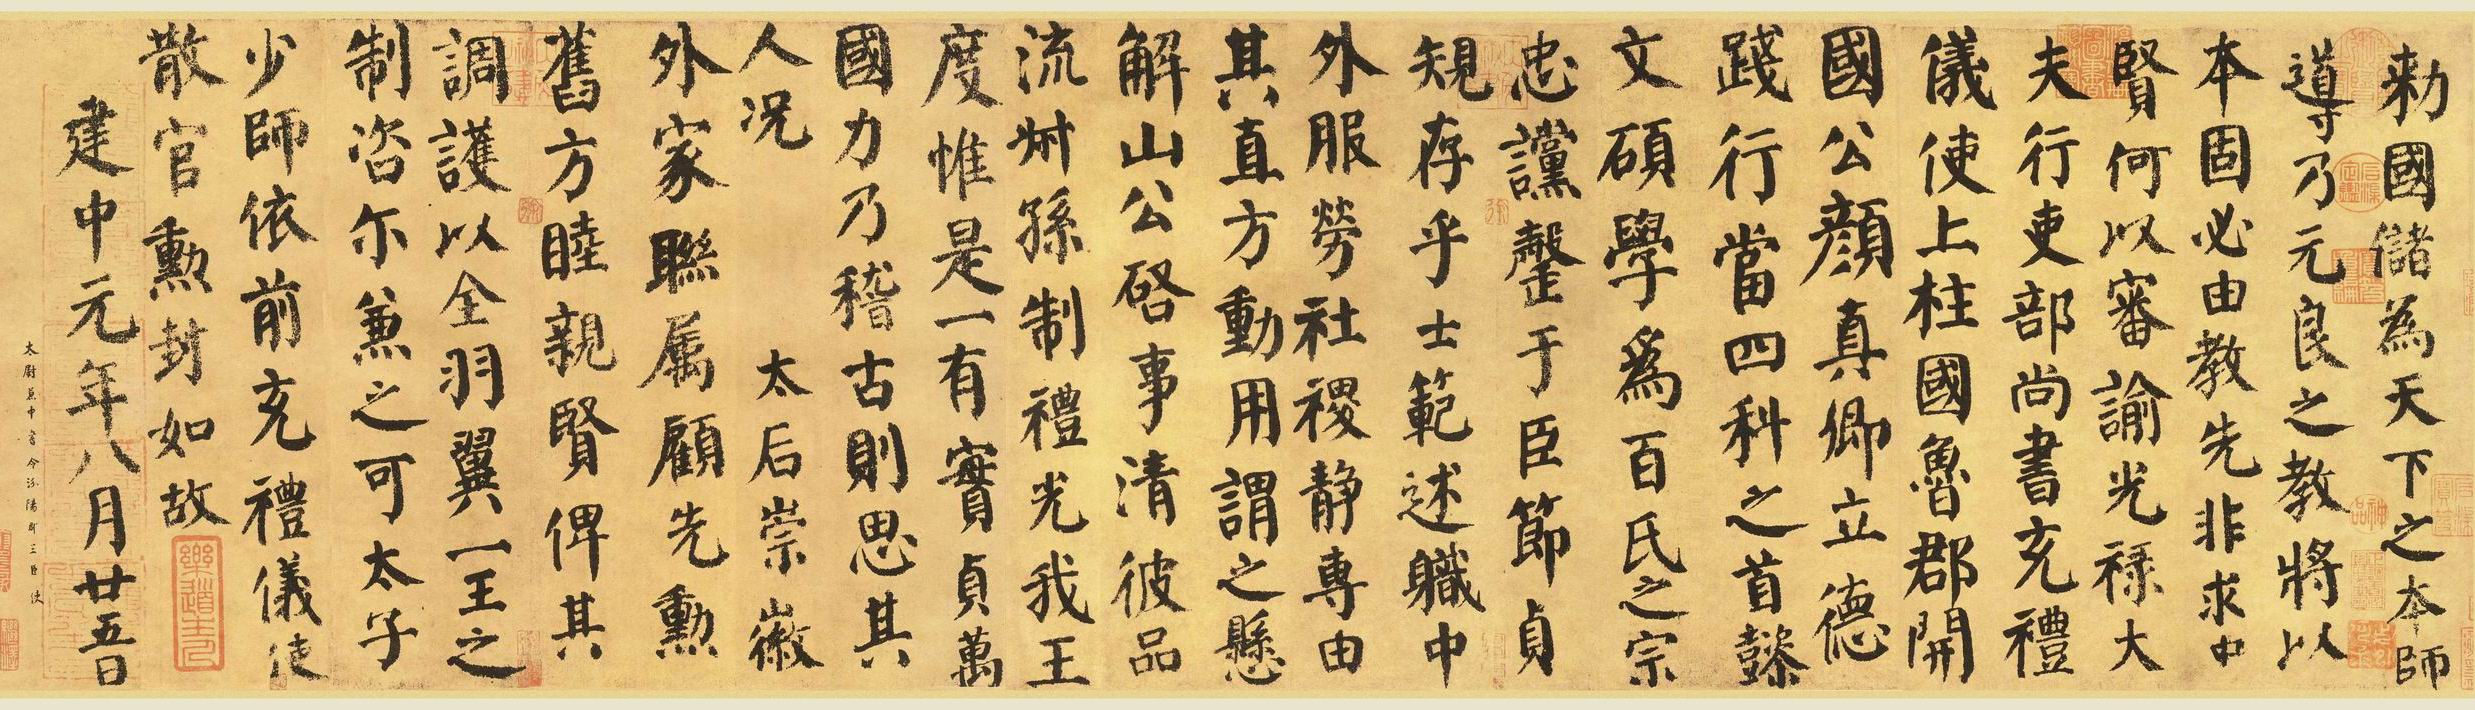 勅國儲為天下之本師
導乃元良之教將以
本固必由教先非求中
賢何以審諭光祿大
夫行吏部尚書充禮
儀使上柱國魯郡開
國公顏真卿立德
踐行當四科之首懿
文碩學為百氏之宗
忠讜罄于臣節貞
規存乎士範述職中
外服勞社稷静專由
其直方動用謂之懸
解山公啓事清彼品
流叔孫制禮光我王
度惟是一有實貞萬
國力乃稽古則思其
人况 太后崇徽
外家聯属顧先勲
舊方睦親賢俾其
調護以全羽翼一王之
制咨尔兼之可太子
少師依前充禮儀使
散官勲封如故
建中元年八月廿五日